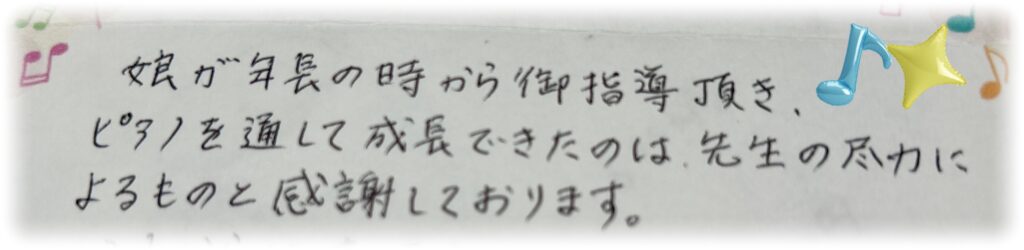 娘が年長の時から御指導頂き、
ピアノを通して成長できたのは、先生の尽力に
よるものと感謝しております。